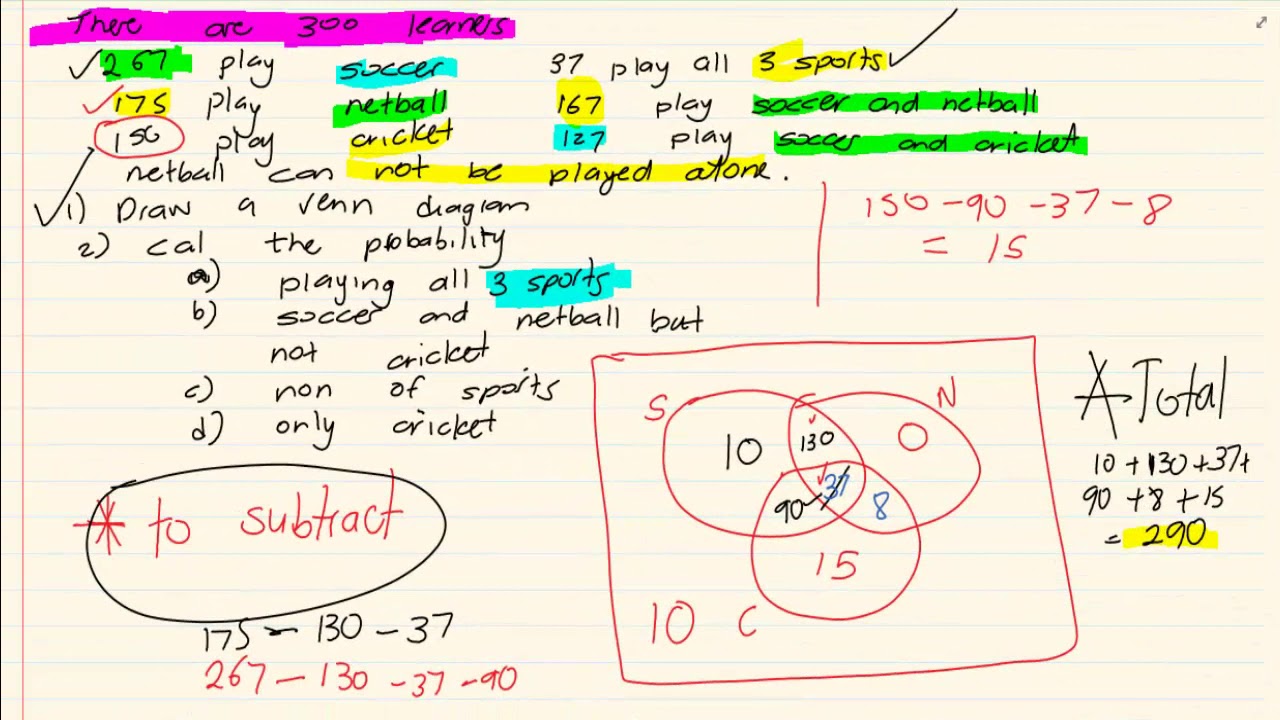 There are 300 learners
267 play soccer 37 play all 3 sports
175 play netball 167 play soccer and netball
150 play cricket 127 play soccer and cricket
netball can not be played alone.
1) Draw a venn diagram
2) cal the probability
a) playing all 3 sports
b) soccer and netball but
not cricket
c) non of sports
d) only cricket
* to subtract
175 - 130 - 37
267 - 130 - 37 - 90
150 - 90 - 37 - 8
= 15
S N
10 130 0
90 37 8
15
10 C
Total
10 + 130 + 37 +
90 + 8 + 15
= 290